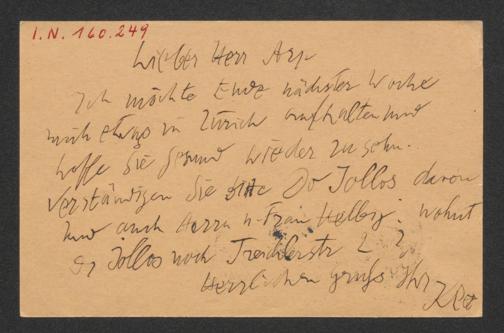 I.N. 160.249
Lieber Herr Arp
Ich möchte Ende nächster Woche
mich etwas in Zürich aufhalten und
hoffe Sie gesund wieder zu sehn.
Verständigen Sie bitte Dr Jollos davon
und auch Herrn u. Frau Helbig. wohnt
Dr Jollos noch Treichlerstr 2 ?
Herzlichen gruss Ihr
Klee